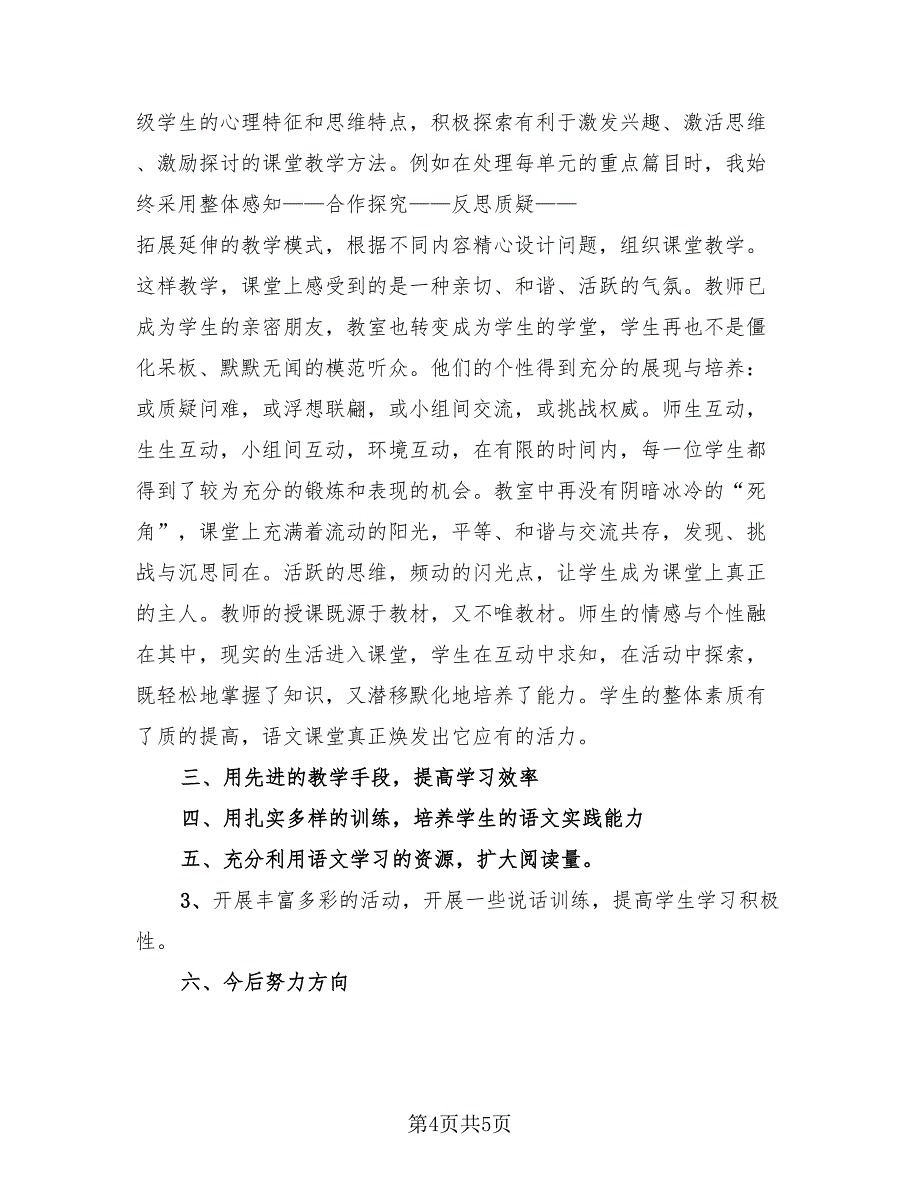 级学生的心理特征和思维特点，积极探索有利于激发兴趣、激活思维
、激励探讨的课堂教学方法。例如在处理每单元的重点篇目时，我始
终采用整体感知——合作探究——反思质疑——
拓展延伸的教学模式，根据不同内容精心设计问题，组织课堂教学。
这样教学，课堂上感受到的是一种亲切、和谐、活跃的气氛。教师已
成为学生的亲密朋友，教室也转变成为学生的学堂，学生再也不是僵
化呆板、默默无闻的模范听众。他们的个性得到充分的展现与培养：
或质疑问难，或浮想联翩，或小组间交流，或挑战权威。师生互动，
生生互动，小组间互动，环境互动，在有限的时间内，每一位学生都
得到了较为充分的锻炼和表现的机会。教室中再没有阴暗冰冷的“死
角”，课堂上充满着流动的阳光，平等、和谐与交流共存，发现、挑
战与沉思同在。活跃的思维，频动的闪光点，让学生成为课堂上真正
的主人。教师的授课既源于教材，又不唯教材。师生的情感与个性融
在其中，现实的生活进入课堂，学生在互动中求知，在活动中探索，
既轻松地掌握了知识，又潜移默化地培养了能力。学生的整体素质有
了质的提高，语文课堂真正焕发出它应有的活力。
三、用先进的教学手段，提高学习效率
四、用扎实多样的训练，培养学生的语文实践能力
五、充分利用语文学习的资源，扩大阅读量。
3、开展丰富多彩的活动，开展一些说话训练，提高学生学习积极
性。
六、今后努力方向
第4页共5页